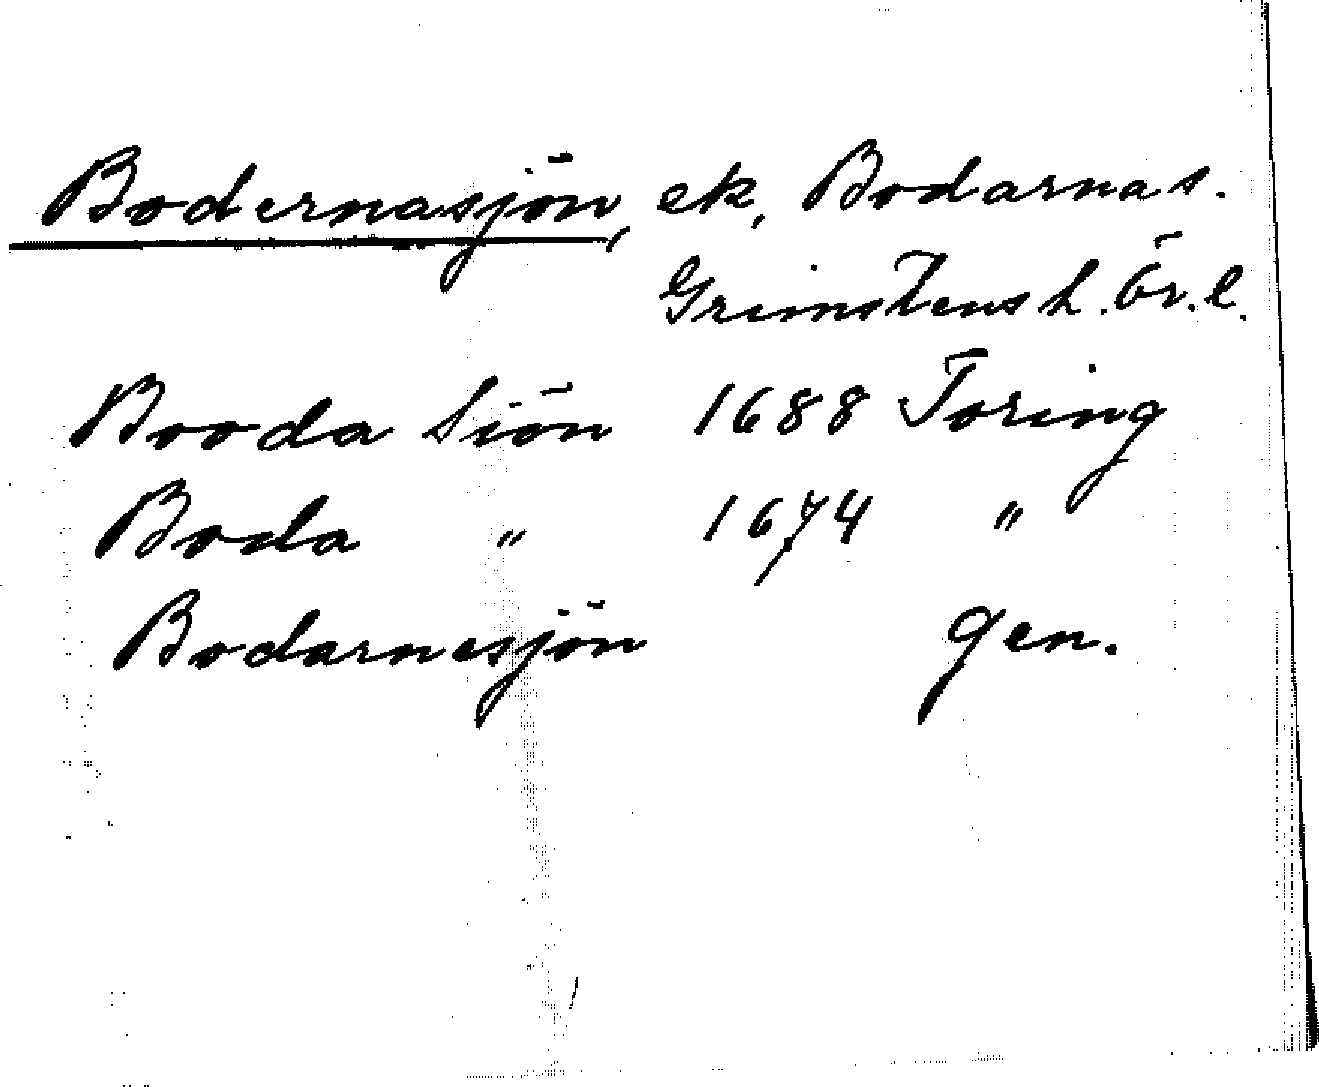 Bodernasjön, ek, Bodarnas.
Grimstens h. Ör. l.
Booda Siön 1688 Toring
Boda " 1674 "
Bodarnesjön gen.